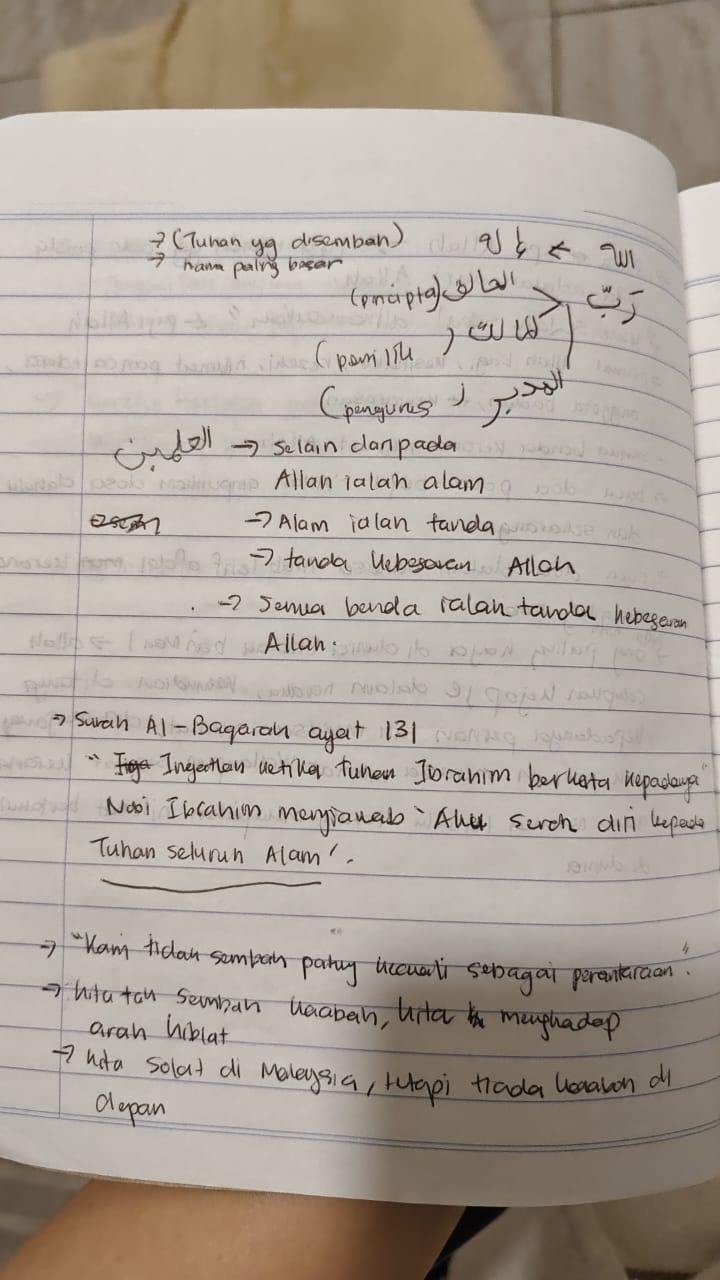 الله → إله → (Tuhan yg disembah)
→ nama paling besar
رَبّ → الخالق (pncipta)
المالك (pemilik)
المدبر (pengurus)
العلمين → Selain daripada
Allah ialah alam
→ Alam ialah tanda
→ tanda kebesaran Allah
→ Semua benda ialah tanda kebesaran
Allah.
→ Surah Al-Baqarah ayat 131
" Ingatlah ketika Tuhan Ibrahim berkata kepadanya"
Nabi Ibrahim menjawab 'Aku serah diri kepada
Tuhan seluruh Alam'.
→ "Kami tidak sembah patung kecuali sebagai perantaraan".
→ kita tak sembah kaabah, kita menghadap
arah kiblat
→ kita solat di Malaysia, tetapi tiada kaabah di
depan